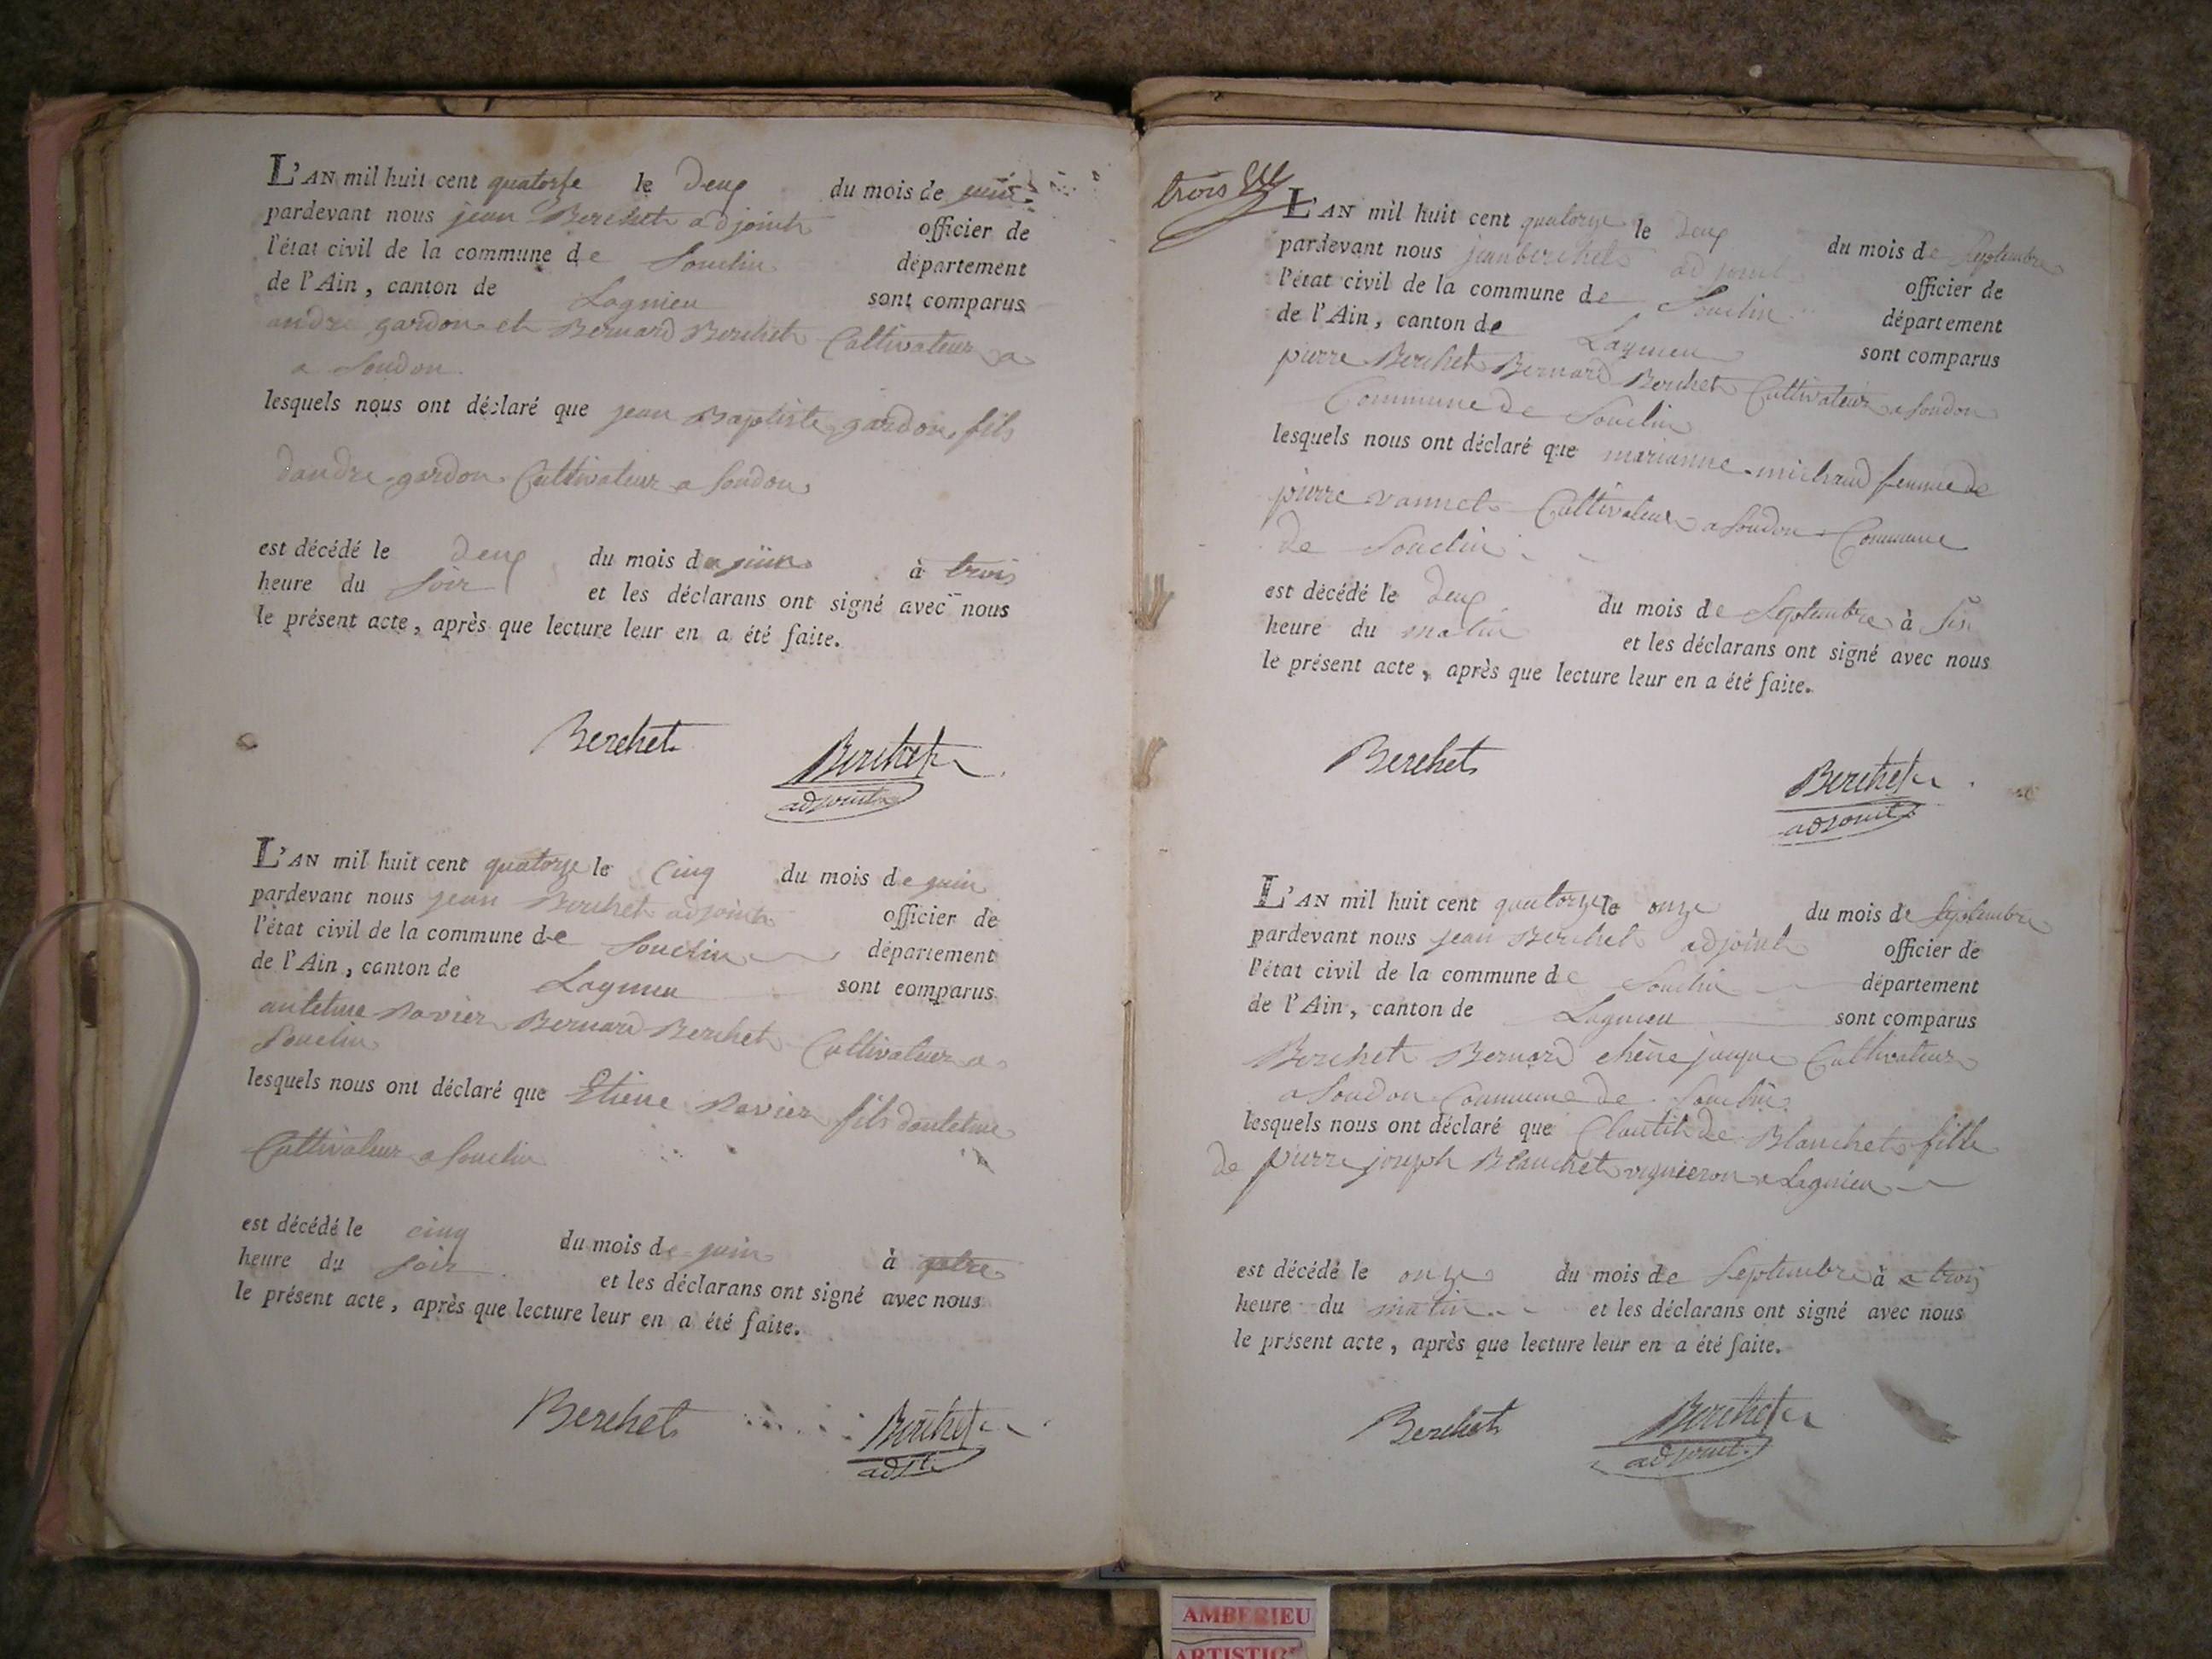 L'AN mil huit cent quatorse le deux du mois de juin
pardevant nous jean Berchet adjoint officier de
l'état civil de la commune de Souclin département
de l'Ain, canton de Lagnieu sont comparus
andre gardon et Bernard Berchet Cultivateur a
a Soudon
lesquels nous ont déclaré que jean Baptiste gardon fils
dandre gardon Cultivateur a Soudon
est décédé le deux du mois de juin à trois
heure du soir et les déclarans ont signé avec nous
le présent acte, après que lecture leur en a été faite.
Berchet Berchet
adjoint
L'AN mil huit cent quatorze le cinq du mois de juin
pardevant nous jean Berchet adjoint officier de
l'état civil de la commune de Souclin département
de l'Ain, canton de Lagnieu sont comparus
antelme Bernard Berchet Cultivateur a
Souclin
lesquels nous ont déclaré que Etiene fils dantelme
Cultivateur a Souclin
est décédé le cinq du mois de juin à qatre
heure du soir et les déclarans ont signé avec nous
le présent acte, après que lecture leur en a été faite.
Berchet Berchet
adjt
trois
L'AN mil huit cent quatorze le deux du mois de Septembre
pardevant nous jean berchet adjoint officier de
l'état civil de la commune de Souclin département
de l'Ain, canton de Lagnieu sont comparus
pierre Berchet Bernard Berchet Cultivateur a Soudon
Commune de Souclin
lesquels nous ont déclaré que marianne michaud femme de
pierre vannet Cultivateur a Soudon Commune
de Souclin
est décédé le deux du mois de Septembre à six
heure du matin et les déclarans ont signé avec nous
le présent acte, après que lecture leur en a été faite.
Berchet Berchet
adjoint
L'AN mil huit cent quatorze le onze du mois de Septembre
pardevant nous jean Berchet adjoint officier de
l'état civil de la commune de Souclin département
de l'Ain, canton de Lagnieu sont comparus
Berchet Bernard chêne jacque Cultivateur
a Soudon Commune de Souclin
lesquels nous ont déclaré que Clautilde Blanchet fille
de pierre joseph Blanchet vignieron a Lagnieu
est décédé le onze du mois de Septembre à a trois
heure du matin et les déclarans ont signé avec nous
le présent acte, après que lecture leur en a été faite.
Berchet Berchet
adjoint
AMBERIEU